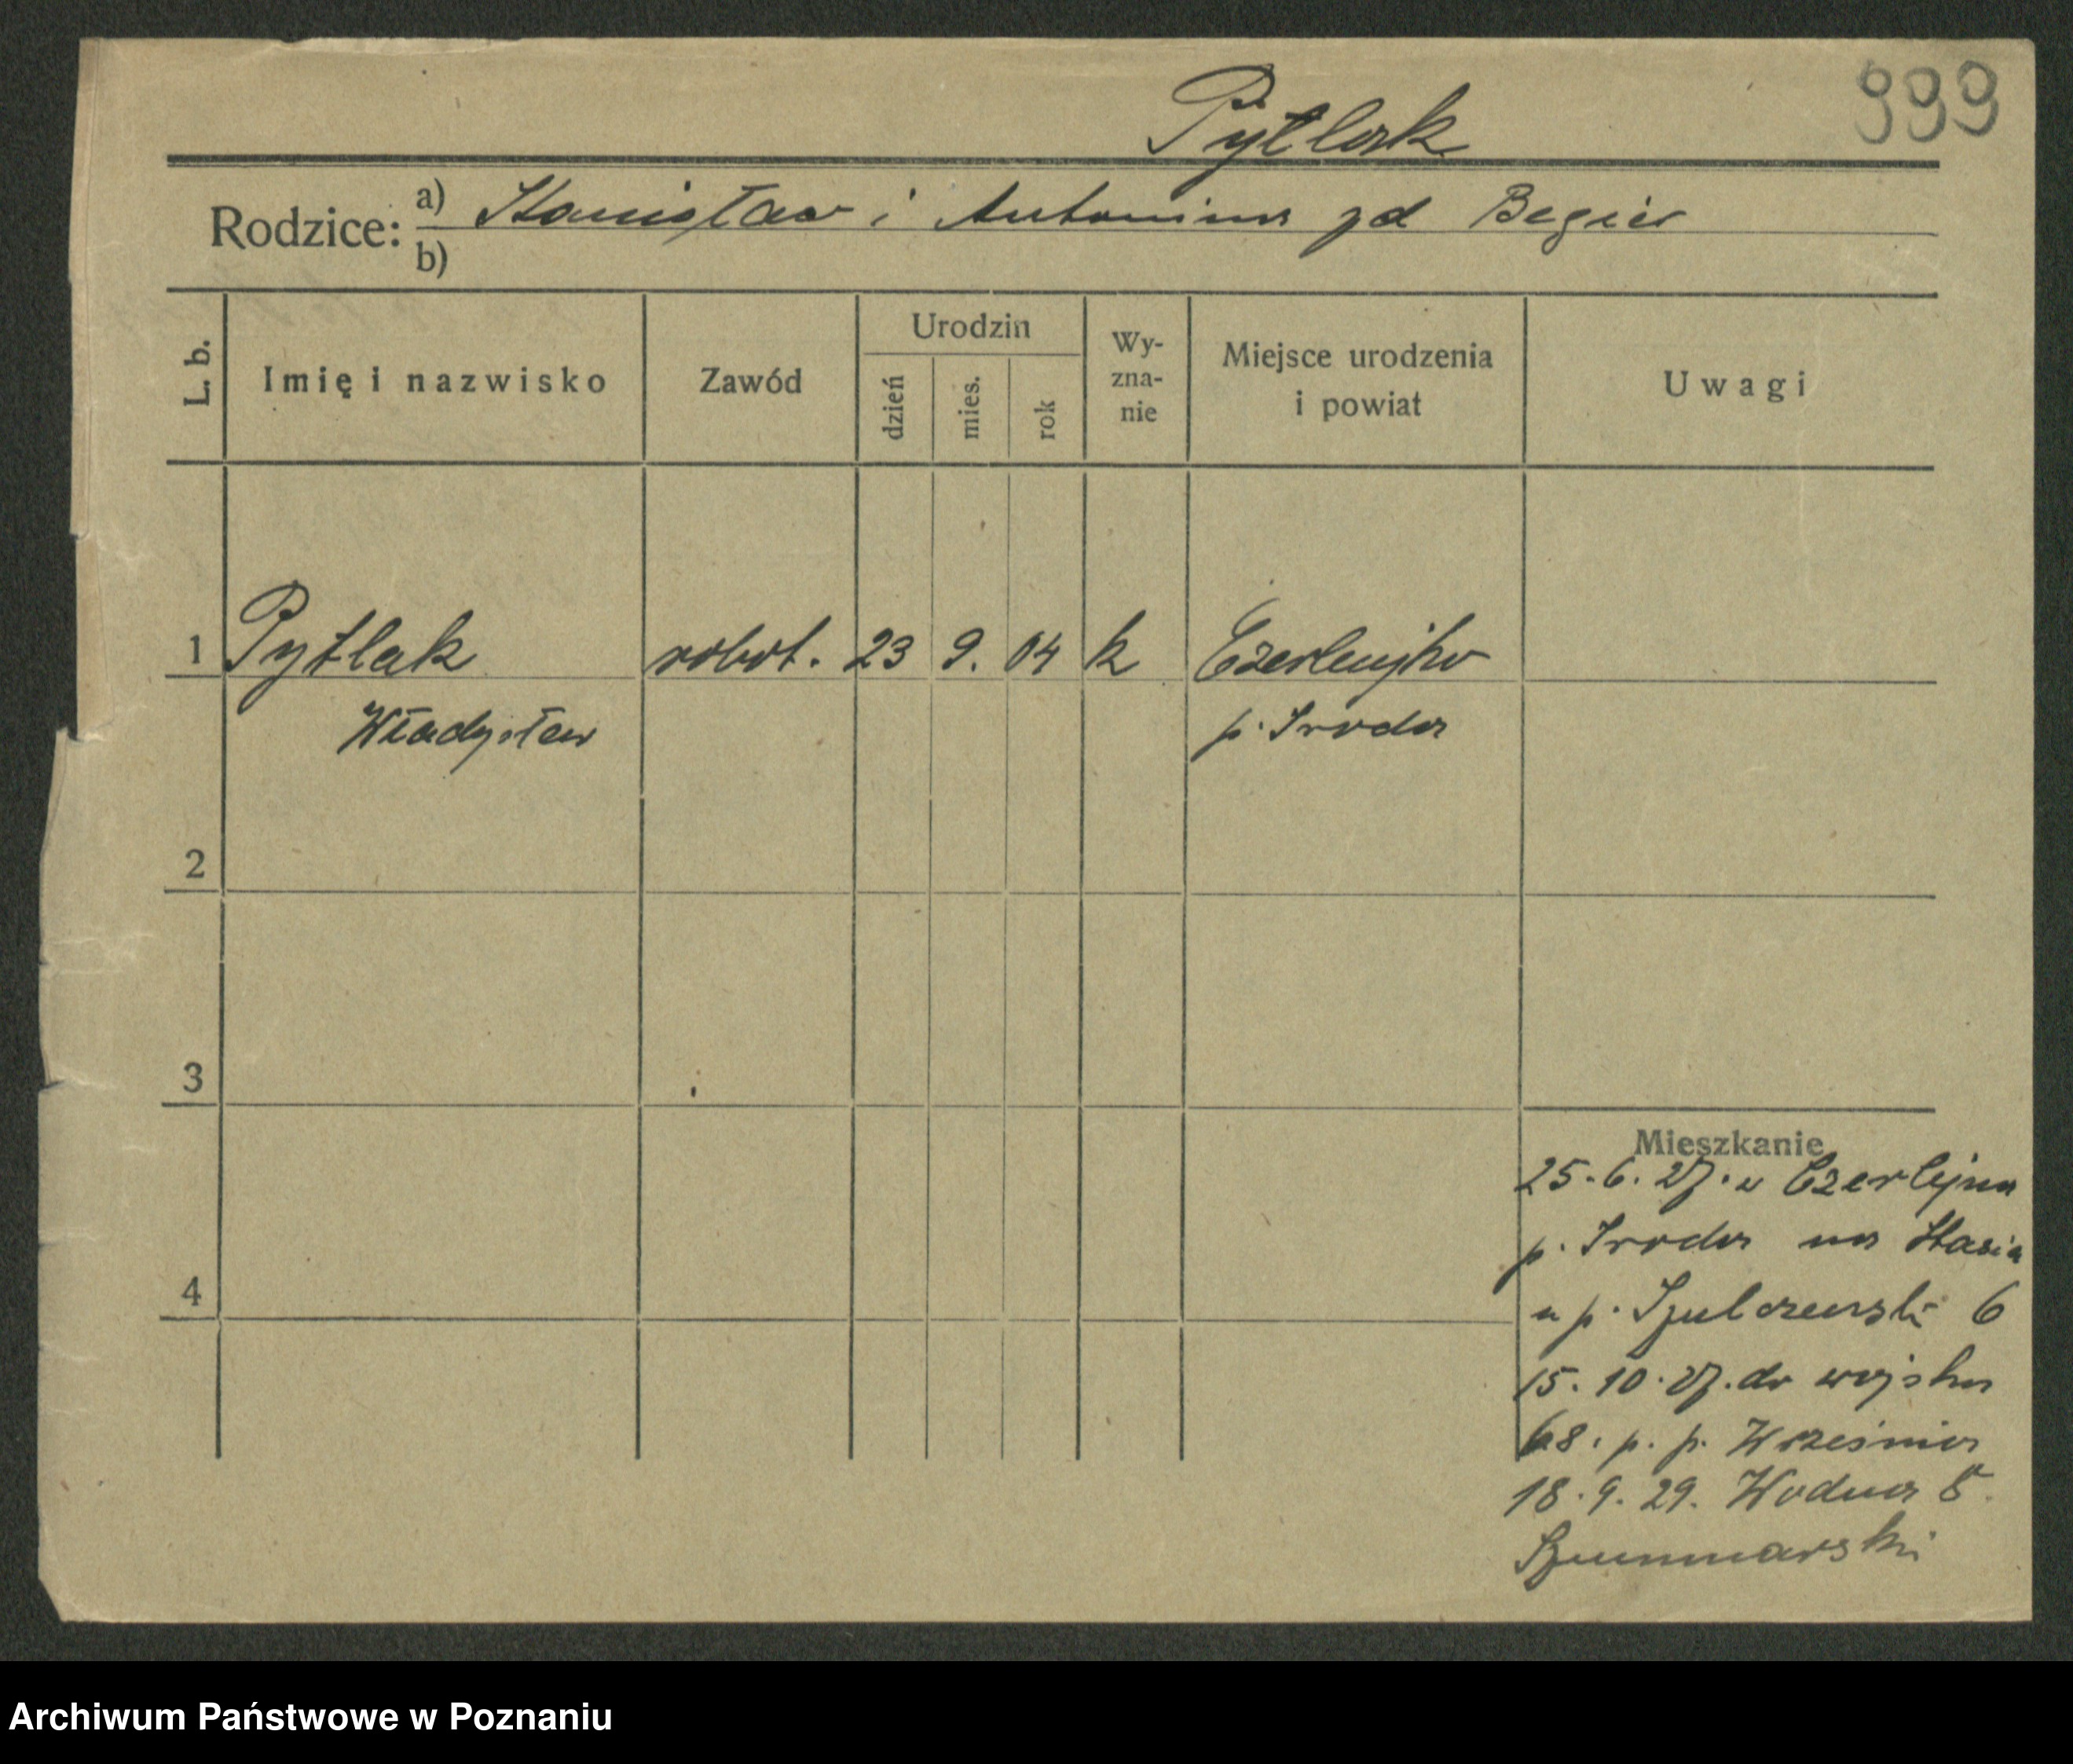 Pytlak 999
Rodzice: a) Stanisław i Antonina zd Begier
b)
L. b. Imię i nazwisko Zawód Urodzin dzień mies. rok Wy-zna-nie Miejsce urodzenia i powiat Uwagi
1 Pytlak robot. 23 9. 04 k Czerlejnko
Władysław p. Sroda
2
3
4
Mieszkanie
25.6.27. z Czerlejna
p. Sroda na Stasia
u p. Szulczewski 6
15.10.27. do wojska
68. p. p. Wrześnior
18.9.29. Wodna 8.
Szummarski
Archiwum Państwowe w Poznaniu